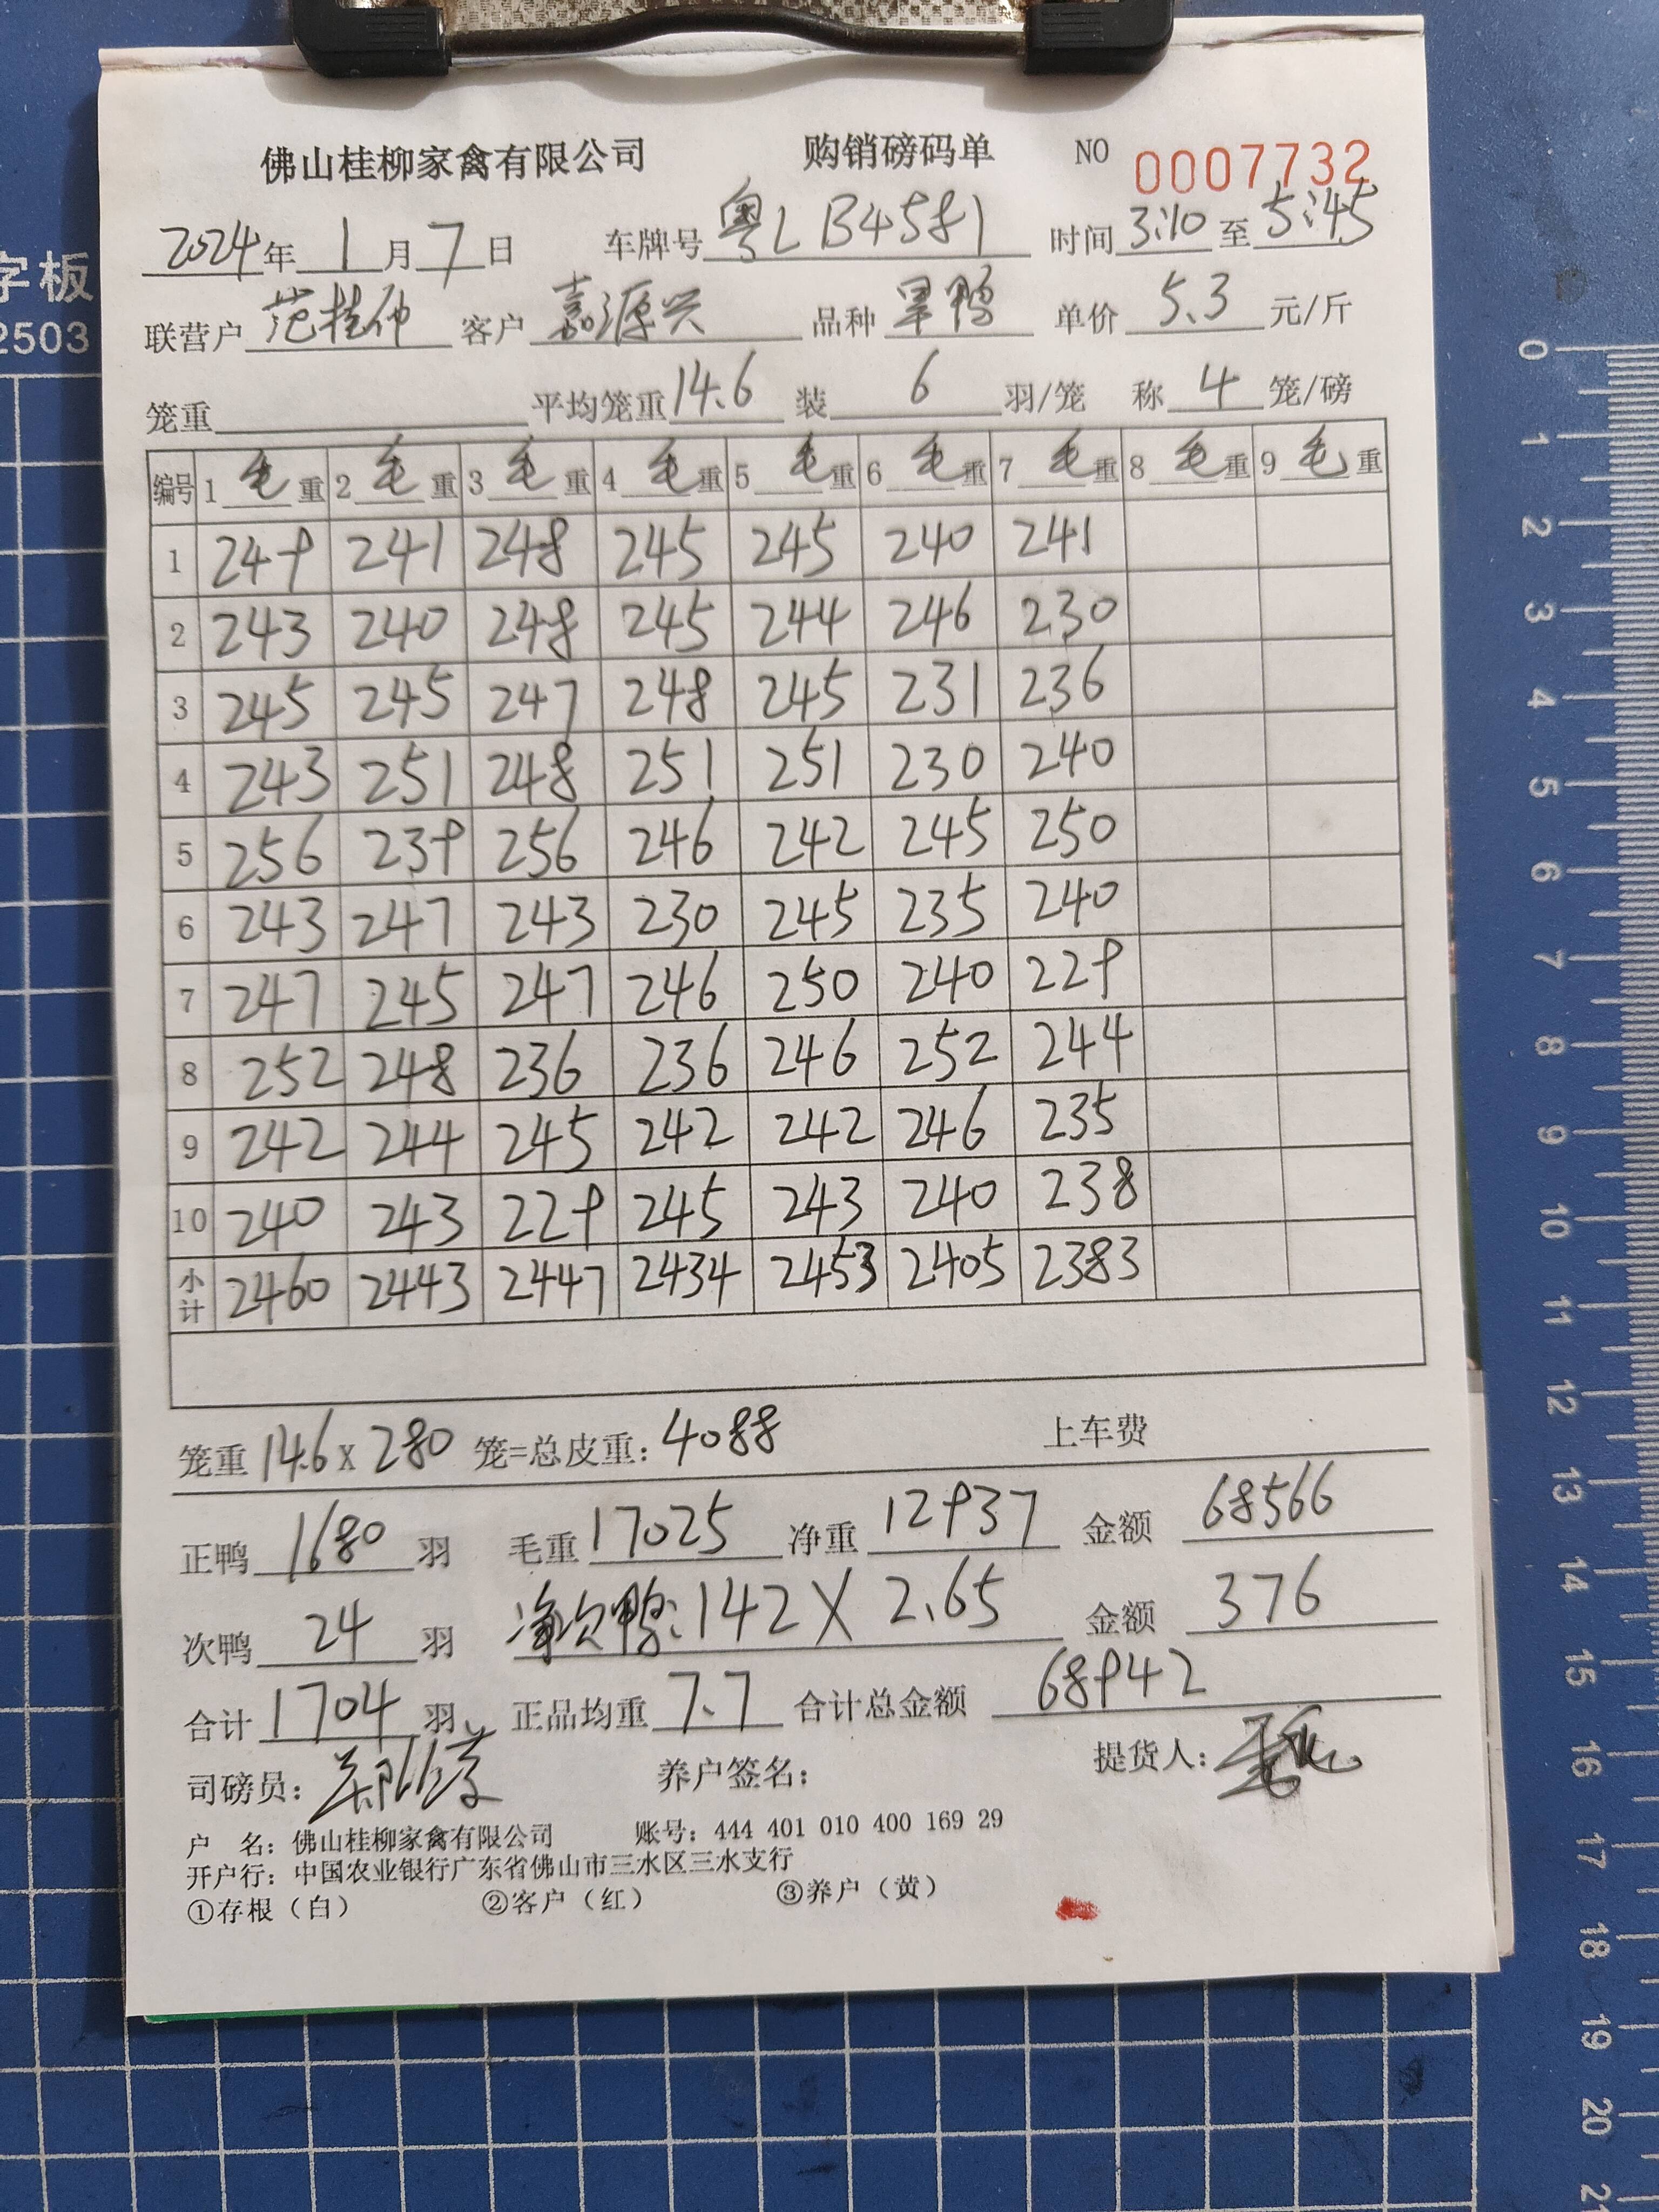 佛山桂柳家禽有限公司 购销磅码单 NO 0007732
2024年 1月 7日 车牌号 粤L B4581 时间 3:10 至 5:45
字板
2503
联营户 范桂仲 客户 嘉源兴 品种 旱鸭 单价 5.3 元/斤
笼重 平均笼重 14.6 装 6 羽/笼 称 4 笼/磅
编号 1 毛重 2 毛重 3 毛重 4 毛重 5 毛重 6 毛重 7 毛重 8 毛重 9 毛重
1 249 241 248 245 245 240 241
2 243 240 248 245 244 246 230
3 245 245 247 248 245 231 236
4 243 251 248 251 251 230 240
5 256 239 256 246 242 245 250
6 243 247 243 230 245 235 240
7 247 245 247 246 250 240 229
8 252 248 236 236 246 252 244
9 242 244 245 242 242 246 235
10 240 243 229 245 243 240 238
小计 2460 2443 2447 2434 2453 2405 2383
笼重 14.6 x 280 笼=总皮重: 4088 上车费
正鸭 1680 羽 毛重 17025 净重 12937 金额 68566
次鸭 24 羽 净次鸭: 142 X 2.65 金额 376
合计 1704 羽 正品均重 7.7 合计总金额 68942
司磅员: 养户签名: 提货人:
户 名: 佛山桂柳家禽有限公司 账号: 444 401 010 400 169 29
开户行: 中国农业银行广东省佛山市三水区三水支行
①存根（白） ②客户（红） ③养户（黄）
0
1
2
3
4
5
6
7
8
9
10
11
12
13
14
15
16
17
18
19
20